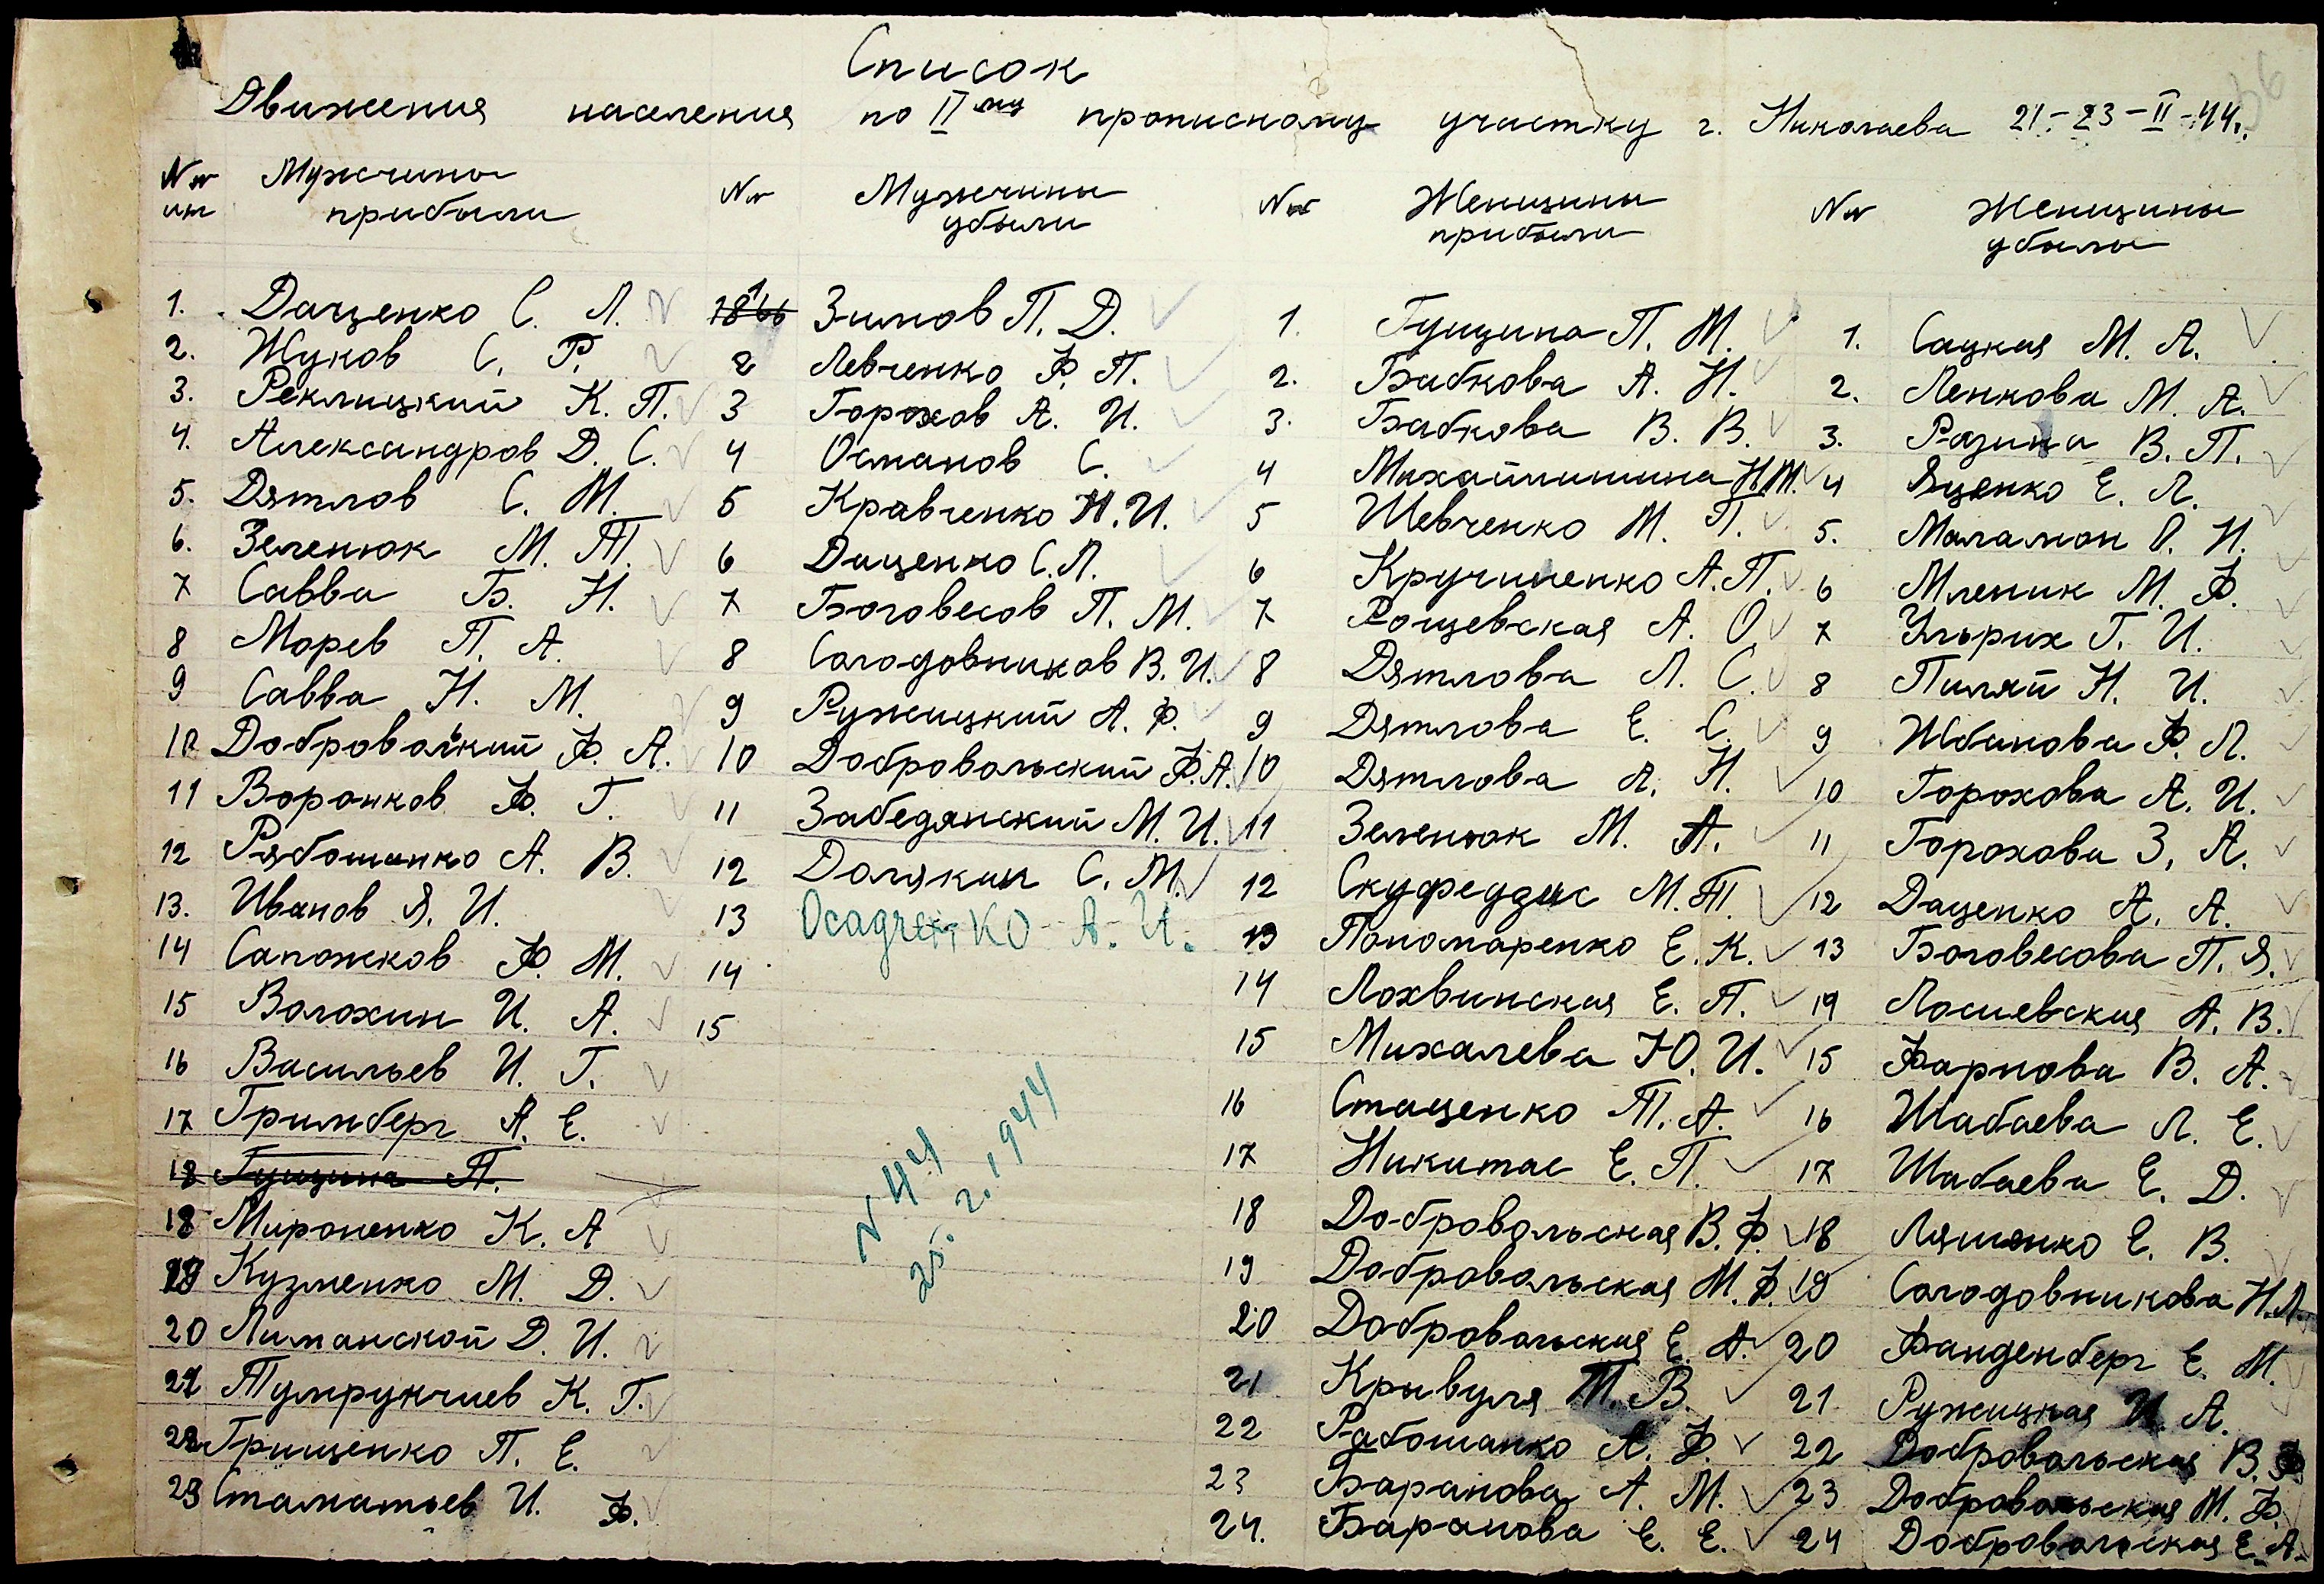 Список
Движения населения по II му прописному участку г. Николаева 21-23-II-44г.
№№ пп Мужчины прибыли № Мужчины убыли № Женщины прибыли № Женщины убыли
1. Даценко С. Л. 1 Зимов П. Д. 1. Гущина П. М. 1. Сацкая М. А.
2. Жуков С. Р. 2 Левченко Ф. П. 2. Бабкова А. Н. 2. Ленкова М. А.
3. Реклицкий К. П. 3 Горохов А. И. 3. Бабкова В. В. 3. Разина В. П.
4. Александров Д. С. 4 Османов С. 4 Михайлишина Н.М. 4 Яценко Е. Л.
5. Дятлов С. М. 5 Кравченко Н. И. 5 Шевченко М. П. 5. Маламон О. Н.
6. Зеленюк М. Т. 6 Даценко С. Л. 6 Кручиненко А. П. 6 Мленик М. Ф.
7 Савва Б. Н. 7 Боговесов П. М. 7 Рощевская А. О. 7 Ульрих Г. И.
8 Морев П. А. 8 Солодовников В. И. 8 Дятлова Л. С. 8 Пиляй Н. И.
9 Савва Н. М. 9 Ружицкий А. Ф. 9 Дятлова Е. С. 9 Жбанова Ф. Л.
10 Добровольский Ф. А. 10 Добровольский Ф. А. 10 Дятлова А. Н. 10 Горохова А. И.
11 Воронков Ф. Г. 11 Забедянский М. И. 11 Зеленюк М. А. 11 Горохова З. А.
12 Рябошапко А. В. 12 Долякин С. М. 12 Скуфедзис М. Т. 12 Даценко А. А.
13. Иванов Я. И. 13 Осадченко А. И. 13 Пономаренко Е. К. 13 Боговесова П. Я.
14 Сапожков Ф. М. 14 14 Лохвинская Е. П. 14 Лосиевская А. В.
15 Волохин И. А. 15 15 Михалева Ю. И. 15 Фарпова В. А.
16 Васильев И. Г. 16 Стаценко Т. А. 16 Шабаева Л. Е.
17 Гримберг А. Е. 17 Никитас Е. П. 17 Шабаева Е. Д.
18 Гущина П.
18 Мироненко К. А 18 Добровольская В. Ф. 18 Ляшенко Е. В.
19 Кузменко М. Д. 19 Добровольская М. Ф. 19 Солодовникова Н. Л.
20 Лиманской Д. И. 20 Добровольская Е. А. 20 Фанденберг Е. М.
21 Тумрукчиев К. Г. 21 Кривуля Т. В. 21 Ружицкая И. А.
22 Грищенко П. Е. 22 Рабошапко А. Ф. 22 Добровольская В. Ф.
23 Стаматьев И. Ф. 23 Баранова А. М. 23 Добровольская М. Ф.
24. Баранова Е. Е. 24 Добровольская Е. А.
N 44
25. 2. 1944